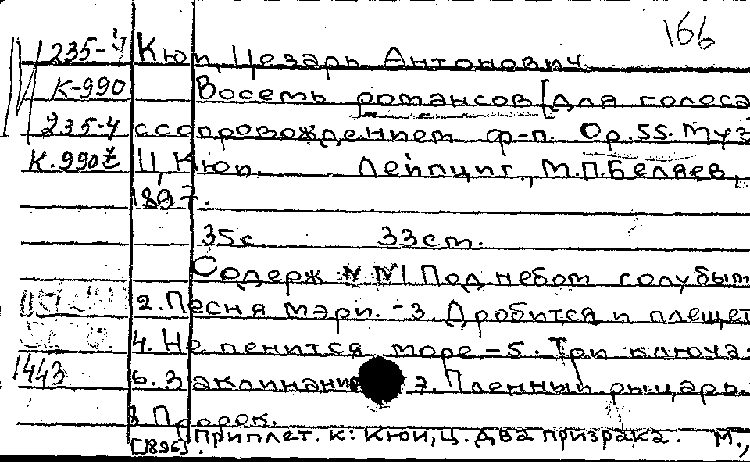 166
235-4 Кюи, Цезарь Антонович
К-990 Восемь романсов [Для голоса
235-4 с сопровождением ф-п. Ор.55. Муз
К.990 Ц. Кюи. Лейпциг, М.П.Беляев,
1897.
35с 33cm.
Содерж: №№1 Под небом голубым
2. Песня Мэри. -3. Дробится и плещет
4. Не пенится море -5. Три ключа.
1443 6. Заклинание 7. Пленный рыцарь.
8. Пророк.
Приплет. к: Кюи, Ц. Два призрака. М.,
[1896].